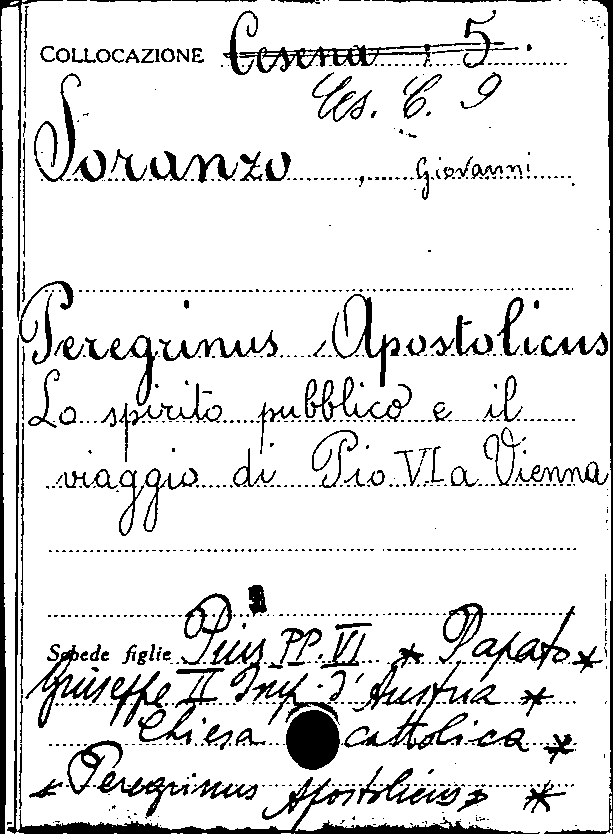 COLLOCAZIONE Cesena ; 5.
Ces. C. 9
Soranzo, Giovanni
Peregrinus Apostolicus
Lo spirito pubblico e il
viaggio di Pio VI a Vienna
Schede figlie Pius PP. VI * Papato *
Giuseppe II Imp. d'Austria *
Chiesa cattolica *
"Peregrinus Apostolicus" *